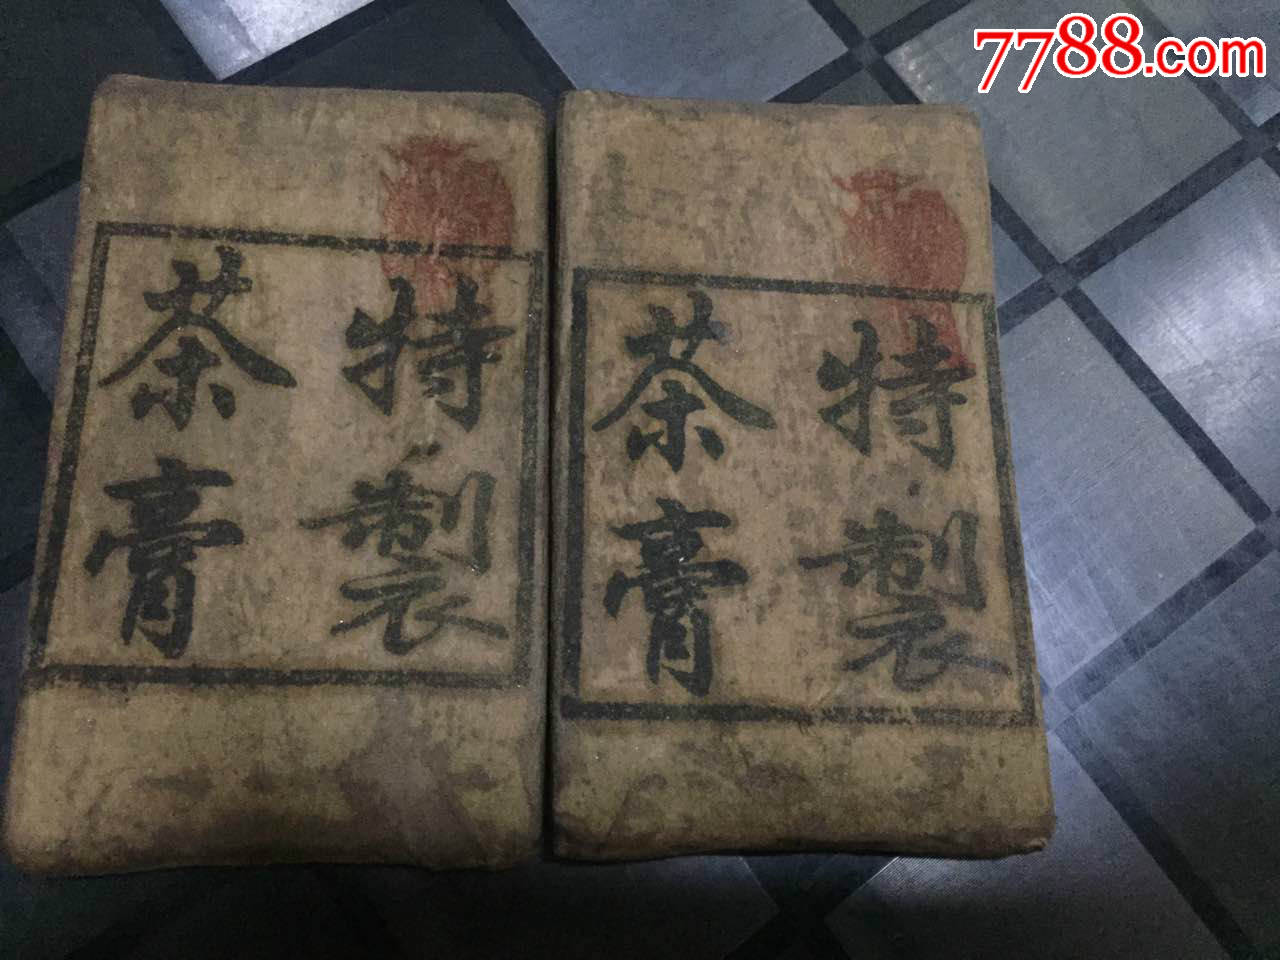 7788.com
特製
茶膏
特製
茶膏